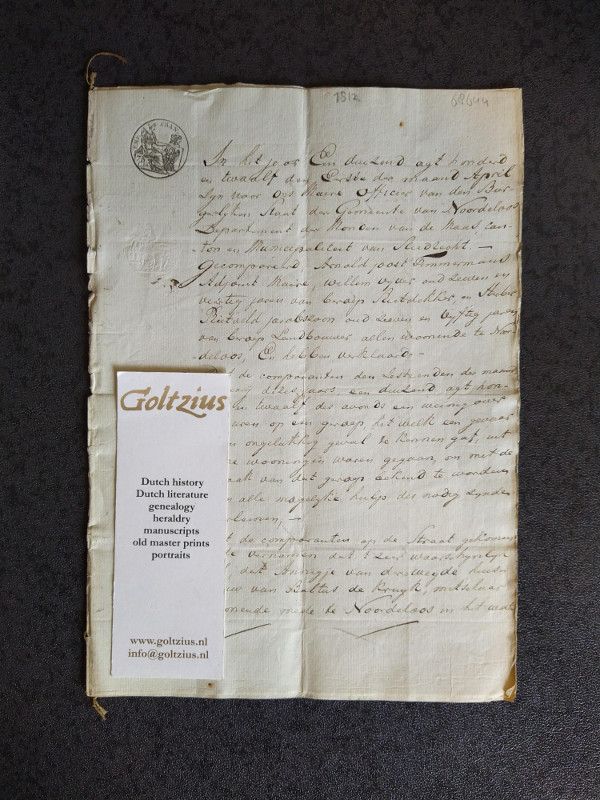 1812
02044
In het jaar Een duizend agt honderd
en twaalf den Eerste der maand April
Zyn voor Ons Maire Officier van den Bur-
gelyken Staat der Gemeente van Noordeloos
Departement der Monden van de Maas Can-
ton en Municipaliteit van Sliedrecht —
Gecompareerd Arnold Joost
Adjoint Maire, Willem Vyver oud Zeeven en
veertig jaren van beroep Rietdekker, en
Jacobszoon oud Zeeven en vyftig jaren
van beroep Landbouwer allen woonende te Noor-
deloos, En hebben verklaard —
de comparanten den Sestienden der maand
dezes jaars een duizend agt hon-
twaalf des avonds een weinig over
uuren op een geroep het welk een gevaar
ongelukkig geval te kennen gaf, uit
wooningen waren gegaan, om met de
van dat geroep bekend te worden
alle mogelyke hulp des nodig zynde
de comparanten op de Straat gekomen
vernamen dat er zeer waarschynlyk
dat Annigje van
van Bastus de Kruyk, metselaar
woonende mede te Noordeloos in het water
Goltzius
Dutch history
Dutch literature
genealogy
heraldry
manuscripts
old master prints
portraits
www.goltzius.nl
info@goltzius.nl